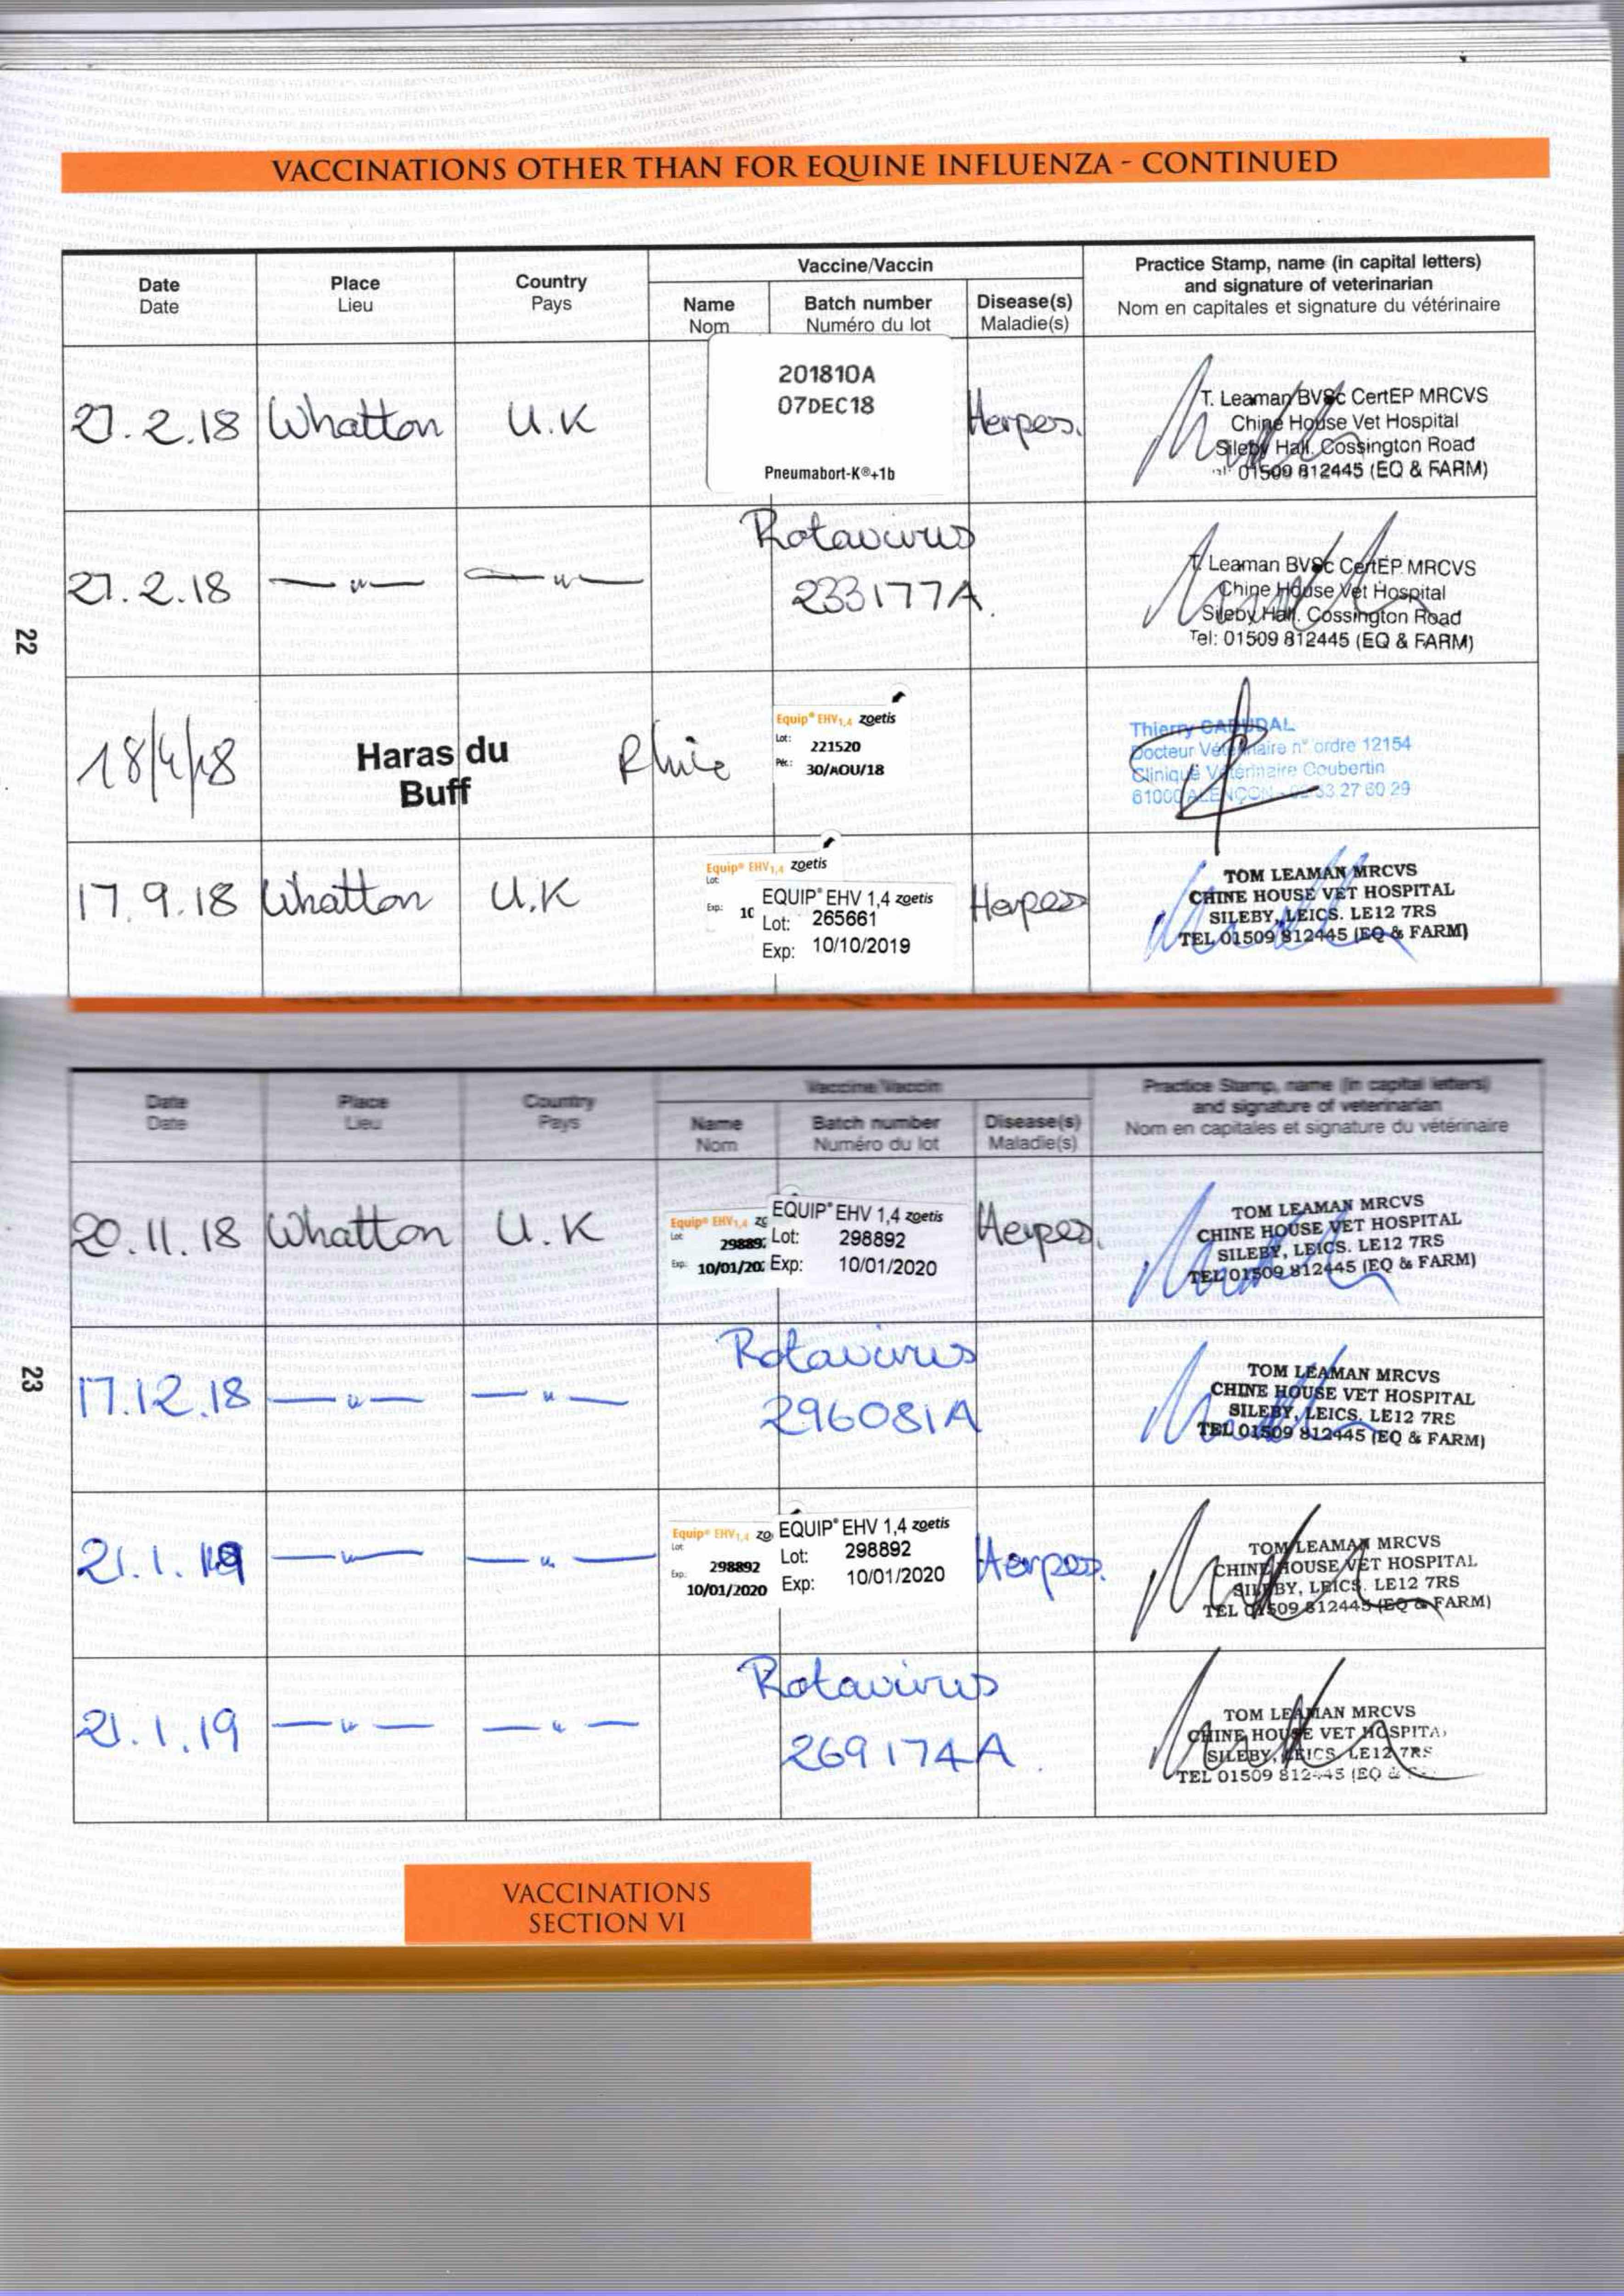 VACCINATIONS OTHER THAN FOR EQUINE INFLUENZA - CONTINUED
Date
Date
Place
Lieu
Country
Pays
Vaccine/Vaccin
Name
Nom
Batch number
Numéro du lot
Disease(s)
Maladie(s)
Practice Stamp, name (in capital letters)
and signature of veterinarian
Nom en capitales et signature du vétérinaire
27.2.18 Whatton U.K
201810A
07DEC18
Pneumabort-K®+1b
Herpes.
T. Leaman BVSc CertEP MRCVS
Chine House Vet Hospital
Sileby Hall. Cossington Road
01509 812445 (EQ & FARM)
27.2.18 — " — — " —
Rotavirus
233177A.
T. Leaman BVSc CertEP MRCVS
Chine House Vet Hospital
Sileby Hall. Cossington Road
Tel: 01509 812445 (EQ & FARM)
22
18/4/18
Haras du
Buff
Equip® EHV1,4 zoetis
Lot: 221520
Pér.: 30/AOU/18
Thierry
Docteur Vétérinaire n° ordre 12154
Clinique Vétérinaire Coubertin
61000 ALENÇON - 02 33 27 60 29
17.9.18 Whatton U.K
Equip® EHV1,4 zoetis
Lot:
Exp: 10
EQUIP® EHV 1,4 zoetis
Lot: 265661
Exp: 10/10/2019
Herpes
TOM LEAMAN MRCVS
CHINE HOUSE VET HOSPITAL
SILEBY, LEICS. LE12 7RS
TEL 01509 812445 (EQ & FARM)
Date
Date
Place
Lieu
Country
Pays
Vaccine/Vaccin
Name
Nom
Batch number
Numéro du lot
Disease(s)
Maladie(s)
Practice Stamp, name (in capital letters)
and signature of veterinarian
Nom en capitales et signature du vétérinaire
20.11.18 Whatton U.K
Equip® EHV1,4 zo
Lot 29889
Exp: 10/01/20
EQUIP® EHV 1,4 zoetis
Lot: 298892
Exp: 10/01/2020
Herpes.
TOM LEAMAN MRCVS
CHINE HOUSE VET HOSPITAL
SILEBY, LEICS. LE12 7RS
TEL 01509 812445 (EQ & FARM)
23
17.12.18 — " — — " —
Rotavirus
296081A
TOM LEAMAN MRCVS
CHINE HOUSE VET HOSPITAL
SILEBY, LEICS. LE12 7RS
TEL 01509 812445 (EQ & FARM)
21.1.19 — " — — " —
Equip® EHV1,4 zo
Lot 298892
Exp: 10/01/2020
EQUIP® EHV 1,4 zoetis
Lot: 298892
Exp: 10/01/2020
Herpes.
TOM LEAMAN MRCVS
CHINE HOUSE VET HOSPITAL
SILEBY, LEICS. LE12 7RS
TEL 01509 812445 (EQ & FARM)
21.1.19 — " — — " —
Rotavirus
269174A.
TOM LEAMAN MRCVS
CHINE HOUSE VET HOSPITA
SILEBY, LEICS. LE12 7RS
TEL 01509 812445 (EQ &
VACCINATIONS
SECTION VI